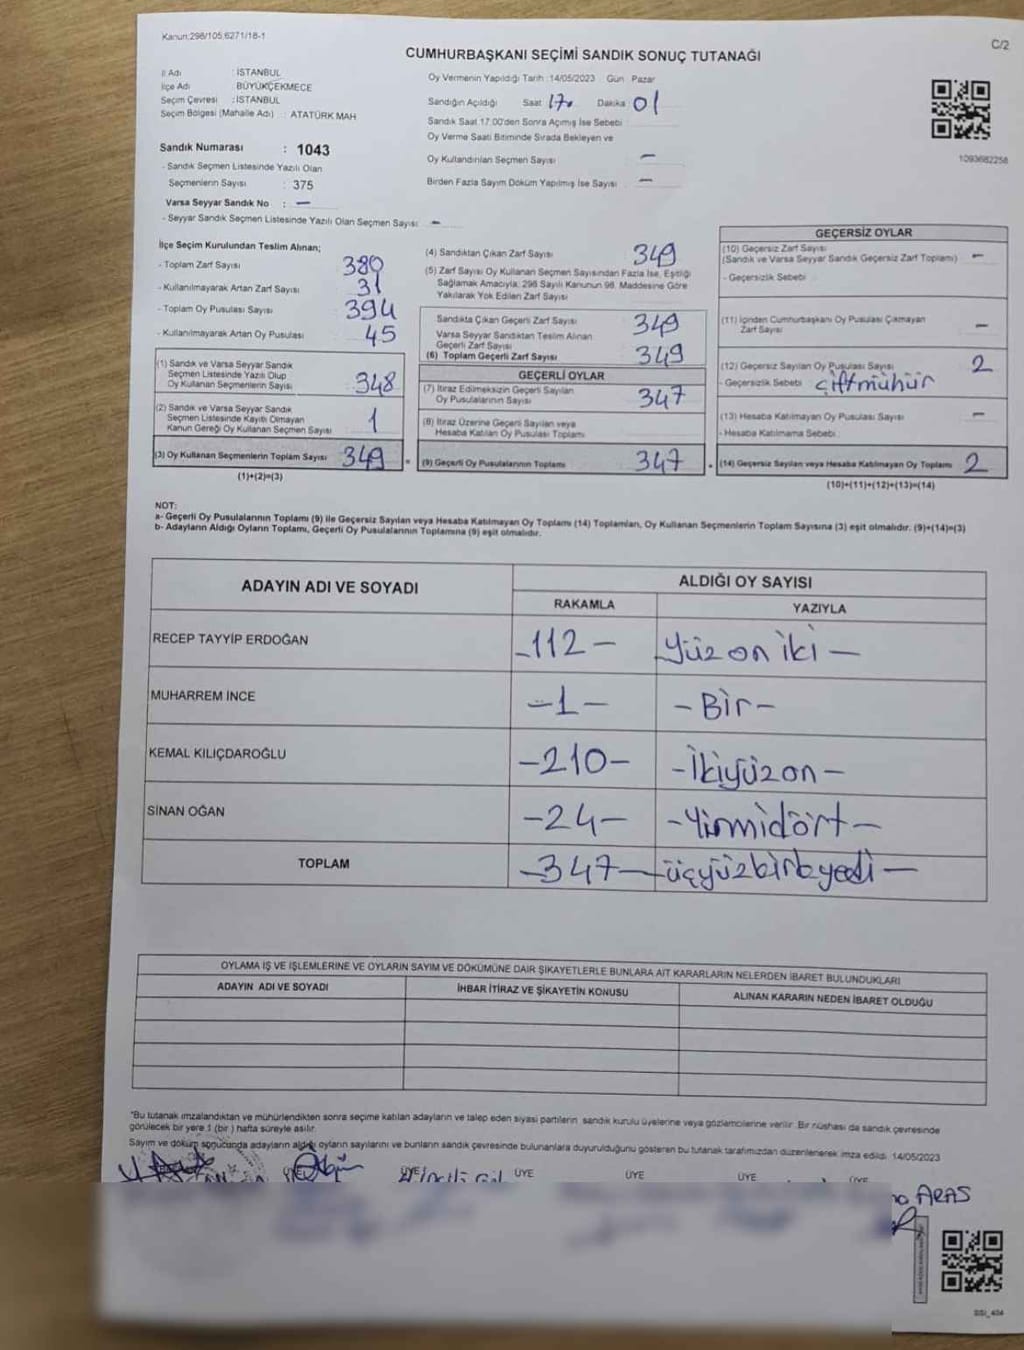 Kanun:298/105,6271/18-1
C/2
CUMHURBAŞKANI SEÇİMİ SANDIK SONUÇ TUTANAĞI
İl Adı : İSTANBUL
İlçe Adı : BÜYÜKÇEKMECE
Seçim Çevresi : İSTANBUL
Seçim Bölgesi (Mahalle Adı) : ATATÜRK MAH
Sandık Numarası : 1043
- Sandık Seçmen Listesinde Yazılı Olan
Seçmenlerin Sayısı : 375
Varsa Seyyar Sandık No : —
- Seyyar Sandık Seçmen Listesinde Yazılı Olan Seçmen Sayısı: –
Oy Vermenin Yapıldığı Tarih :14/05/2023 Gün Pazar
Sandığın Açıldığı Saat 17. Dakika 01
Sandık Saat 17:00'den Sonra Açımış İse Sebebi :
Oy Verme Saati Bitiminde Sırada Bekleyen ve
Oy Kullandırılan Seçmen Sayısı : —
Birden Fazla Sayım Döküm Yapılmış İse Sayısı : —
1093682258
İlçe Seçim Kurulundan Teslim Alınan;
- Toplam Zarf Sayısı : 380
- Kullanılmayarak Artan Zarf Sayısı : 31
- Toplam Oy Pusulası Sayısı : 394
- Kullanılmayarak Artan Oy Pusulası : 45
(1) Sandık ve Varsa Seyyar Sandık
Seçmen Listesinde Yazılı Olup
Oy Kullanan Seçmenlerin Sayısı 348
(2) Sandık ve Varsa Seyyar Sandık
Seçmen Listesinde Kayıtlı Olmayan
Kanun Gereği Oy Kullanan Seçmen Sayısı 1
(3) Oy Kullanan Seçmenlerin Toplam Sayısı 349 =
(1)+(2)=(3)
(4) Sandıktan Çıkan Zarf Sayısı 349
(5) Zarf Sayısı Oy Kullanan Seçmen Sayısından Fazla İse, Eşitliği
Sağlamak Amacıyla, 298 Sayılı Kanunun 98. Maddesine Göre
Yakılarak Yok Edilen Zarf Sayısı
Sandıkta Çıkan Geçerli Zarf Sayısı 349
Varsa Seyyar Sandıktan Teslim Alınan
Geçerli Zarf Sayısı
(6) Toplam Geçerli Zarf Sayısı 349
GEÇERLİ OYLAR
(7) İtiraz Edilmeksizin Geçerli Sayılan
Oy Pusulalarının Sayısı 347
(8) İtiraz Üzerine Geçerli Sayılan veya
Hesaba Katılan Oy Pusulası Toplamı
(9) Geçerli Oy Pusulalarının Toplamı 347 +
GEÇERSİZ OYLAR
(10) Geçersiz Zarf Sayısı
(Sandık ve Varsa Seyyar Sandık Geçersiz Zarf Toplamı) –
- Geçersizlik Sebebi :
(11) İçinden Cumhurbaşkanı Oy Pusulası Çıkmayan
Zarf Sayısı –
(12) Geçersiz Sayılan Oy Pusulası Sayısı 2
- Geçersizlik Sebebi çiftmühür
(13) Hesaba Katılmayan Oy Pusulası Sayısı –
- Hesaba Katılmama Sebebi
(14) Geçersiz Sayılan veya Hesaba Katılmayan Oy Toplamı 2
(10)+(11)+(12)+(13)=(14)
NOT:
a- Geçerli Oy Pusulalarının Toplamı (9) ile Geçersiz Sayılan veya Hesaba Katılmayan Oy Toplamı (14) Toplamları, Oy Kullanan Seçmenlerin Toplam Sayısına (3) eşit olmalıdır. (9)+(14)=(3)
b- Adayların Aldığı Oyların Toplamı, Geçerli Oy Pusulalarının Toplamına (9) eşit olmalıdır.
ADAYIN ADI VE SOYADI
ALDIĞI OY SAYISI
RAKAMLA YAZIYLA
RECEP TAYYİP ERDOĞAN -112- Yüz on iki -
MUHARREM İNCE -1- -Bir-
KEMAL KILIÇDAROĞLU -210- -İkiyüzon-
SİNAN OĞAN -24- -Yirmidört-
TOPLAM -347-
OYLAMA İŞ VE İŞLEMLERİNE VE OYLARIN SAYIM VE DÖKÜMÜNE DAİR ŞİKAYETLERLE BUNLARA AİT KARARLARIN NELERDEN İBARET BULUNDUKLARI
ADAYIN ADI VE SOYADI İHBAR İTİRAZ VE ŞİKAYETİN KONUSU ALINAN KARARIN NEDEN İBARET OLDUĞU
"Bu tutanak imzalandıktan ve mühürlendikten sonra seçime katılan adayların ve talep eden siyasi partilerin sandık kurulu üyelerine veya gözlemcilerine verilir. Bir nüshası da sandık çevresinde
görülecek bir yere 1 (bir) hafta süreyle asılır.
Sayım ve döküm sonucunda adayların aldığı oyların sayılarını ve bunların sandık çevresinde bulunanlara duyurulduğunu gösteren bu tutanak tarafımızdan düzenlenerek imza edildi. 14/05/2023
ÜYE ÜYE ÜYE ÜYE ÜYE ÜYE
ARAS
SSI_404